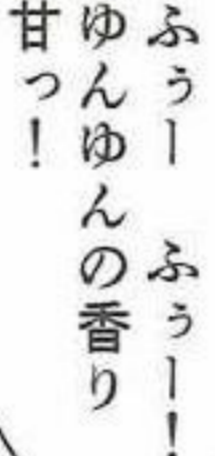 ふぅー　ふぅー！
ゆんゆんの香り
甘っ！